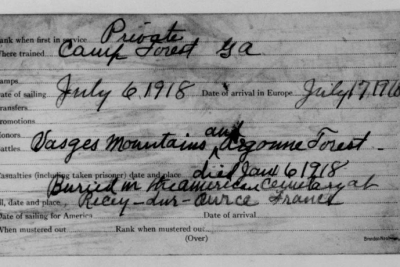 Rank when first in service Private
Where trained Camp Forest Ga
Camps
Date of sailing July 6, 1918 Date of arrival in Europe July 17, 1918
Transfers
Promotions
Honors
Battles Vasges Mountains and Argonne Forest -
Casualties (including taken prisoner) date and place died Jan 6 1918
Buried in the american Cemetary at
date and place Recey-Sur-Ource France
Date of sailing for America Date of arrival
When mustered out Rank when mustered out
(Over)